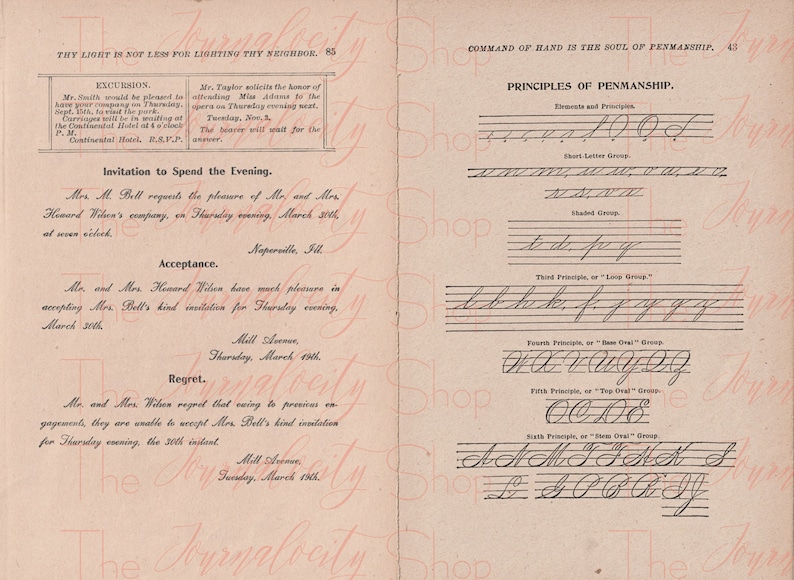 THY LIGHT IS NOT LESS FOR LIGHTING THY NEIGHBOR. 85
EXCURSION.
Mr. Smith would be pleased to
have your company on Thursday,
Sept. 15th, to visit the park.
Carriages will be in waiting at
the Continental Hotel at 4 o'clock
P. M.
Continental Hotel. R.S.V.P.
Mr. Taylor solicits the honor of
attending Miss Adams to the
opera on Thursday evening next.
Tuesday, Nov. 3.
The bearer will wait for the
answer.
Invitation to Spend the Evening.
Mrs. M. Bell requests the pleasure of Mr. and Mrs.
Howard Wilson's company, on Thursday evening, March 30th,
at seven o'clock.
Naperville, Ill.
Acceptance.
Mr. and Mrs. Howard Wilson have much pleasure in
accepting Mrs. Bell's kind invitation for Thursday evening,
March 30th.
Mill Avenue,
Thursday, March 19th.
Regret.
Mr. and Mrs. Wilson regret that owing to previous en-
gagements, they are unable to accept Mrs. Bell's kind invitation
for Thursday evening, the 30th instant.
Mill Avenue,
Tuesday, March 19th.
COMMAND OF HAND IS THE SOUL OF PENMANSHIP. 43
PRINCIPLES OF PENMANSHIP.
Elements and Principles.
Short-Letter Group.
Shaded Group.
t d, p q
Third Principle, or "Loop Group."
l b h k, f, j y g z
Fourth Principle, or "Base Oval" Group.
W X V U Y Q Z
Fifth Principle, or "Top Oval" Group.
O C D E
Sixth Principle, or "Stem Oval" Group.
A N M T F H K S
L G P B R I J
The Journalocity Shop